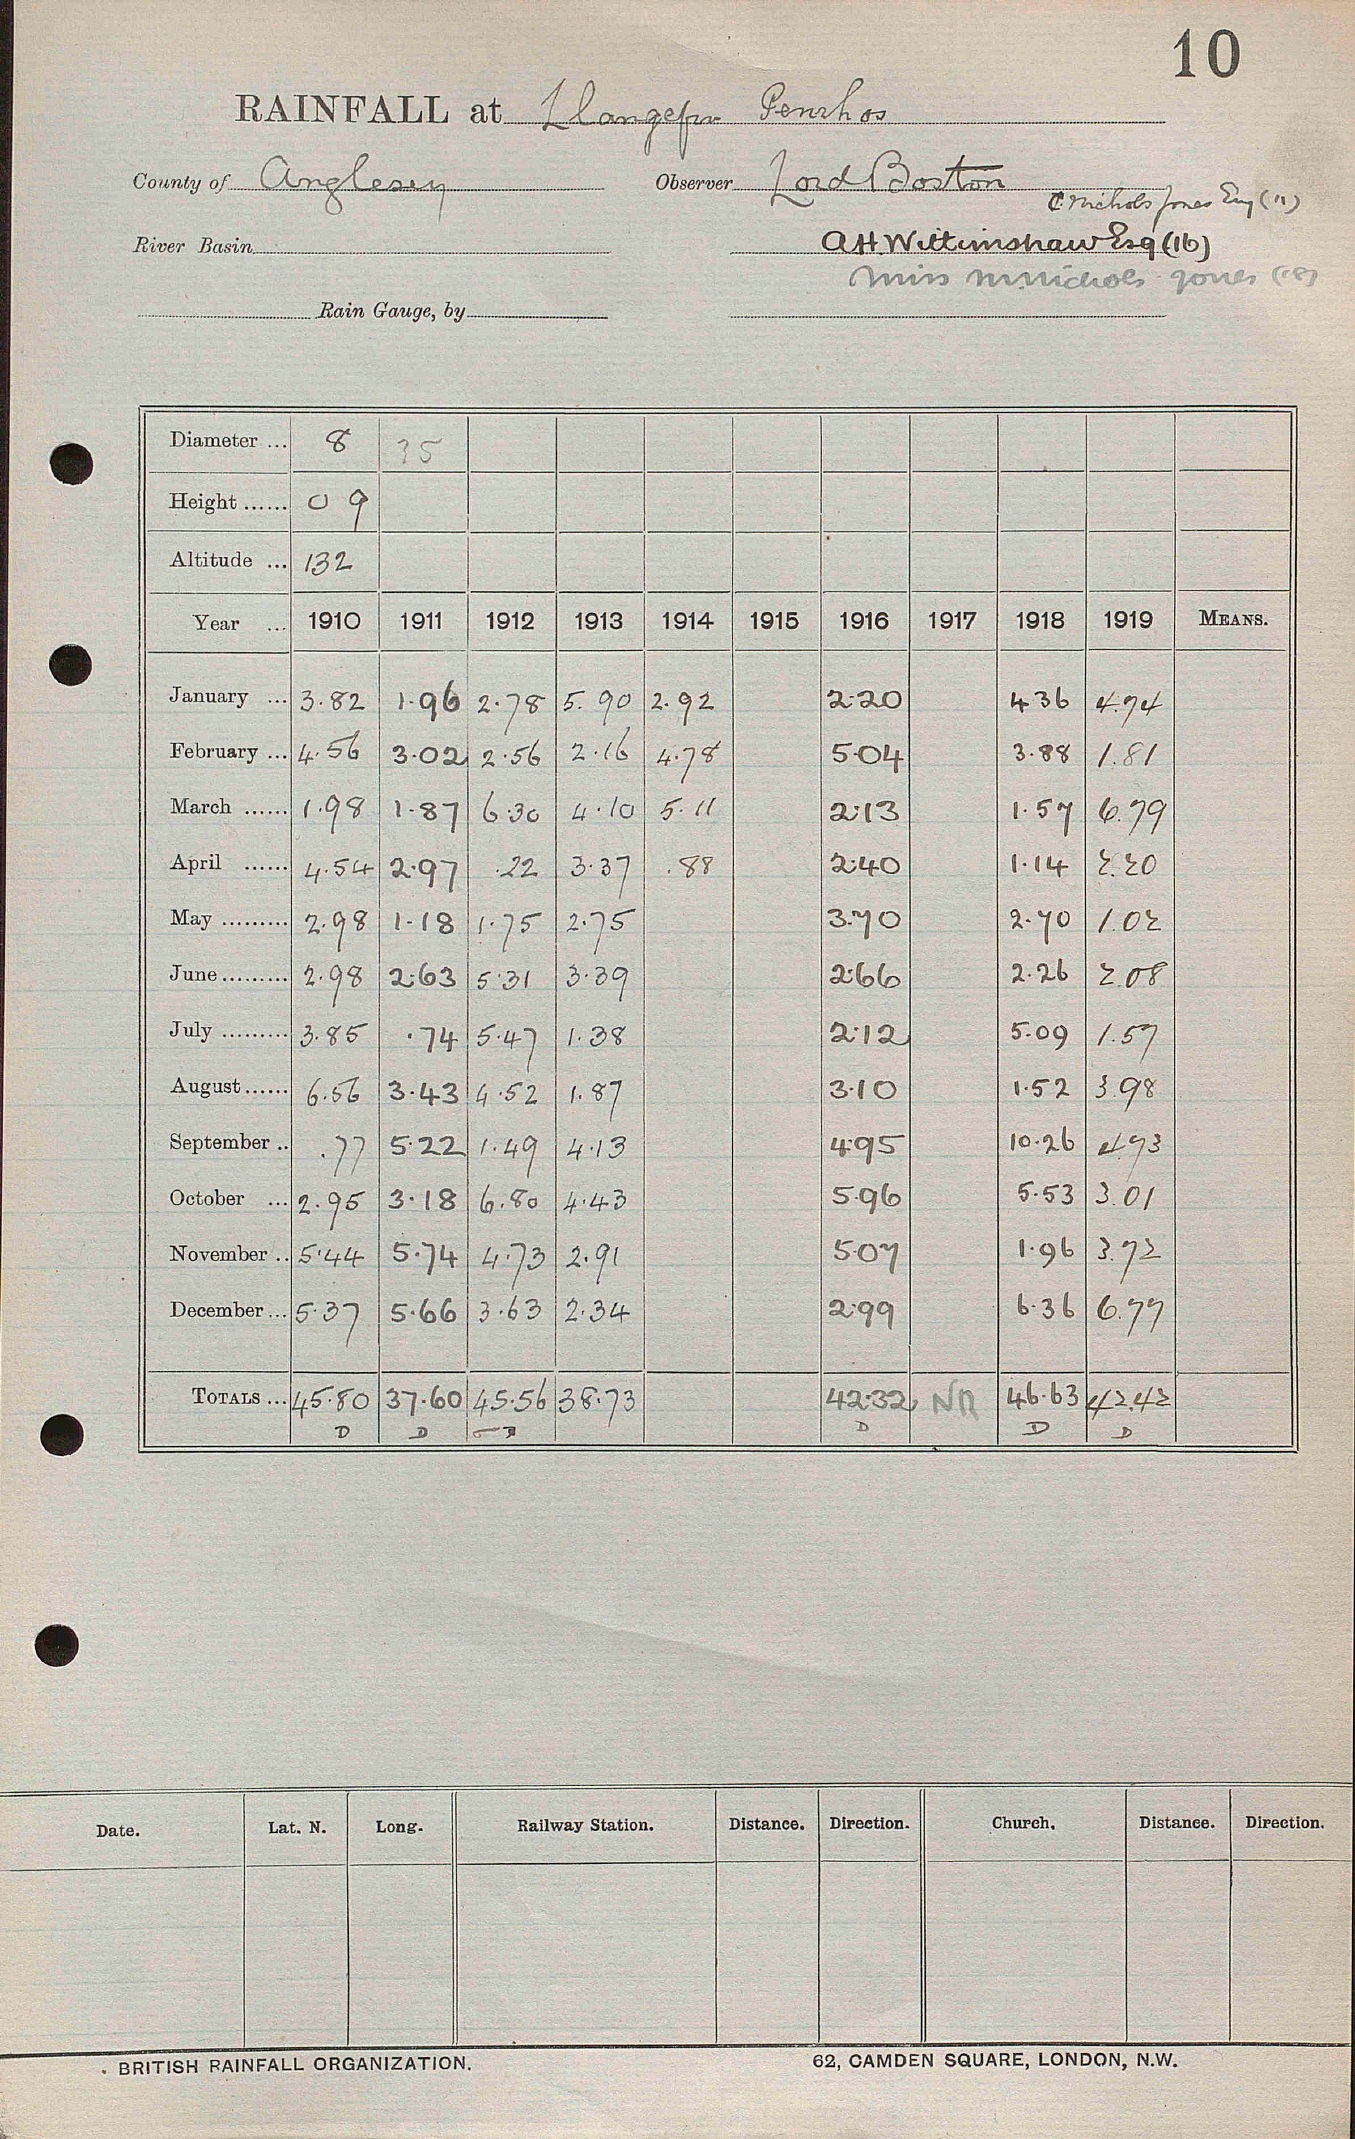 10
RAINFALL at Llangefni Penrhos
County of Anglesey Observer Lord Boston
C. Nichols Jones Esq (11)
River Basin A H Wittimshaw Esq (16)
Miss M Nichols Jones (18)
Rain Gauge, by
Diameter ... 8 35
Height ...... 0 9
Altitude ... 132
Year ... 1910 1911 1912 1913 1914 1915 1916 1917 1918 1919 MEANS.
January ... 3.82 1.96 2.78 5.90 2.92 2.20 4.36 4.74
February ... 4.56 3.02 2.56 2.16 4.78 5.04 3.88 1.81
March ...... 1.98 1.87 6.30 4.10 5.11 2.13 1.57 6.79
April ...... 4.54 2.97 .22 3.37 .88 2.40 1.14 2.20
May ......... 2.98 1.18 1.75 2.75 3.70 2.70 1.02
June ......... 2.98 2.63 5.31 3.39 2.66 2.26 2.08
July ......... 3.85 .74 5.47 1.38 2.12 5.09 1.57
August ...... 6.56 3.43 4.52 1.87 3.10 1.52 3.98
September .. .77 5.22 1.49 4.13 4.95 10.26 4.73
October ... 2.95 3.18 6.80 4.43 5.96 5.53 3.01
November .. 5.44 5.74 4.73 2.91 5.07 1.96 3.72
December ... 5.37 5.66 3.63 2.34 2.99 6.36 6.77
TOTALS ... 45.80 37.60 45.56 38.73 42.32 NR 46.63 42.42
D D D D D D
Date. Lat. N. Long. Railway Station. Distance. Direction. Church. Distance. Direction.
BRITISH RAINFALL ORGANIZATION. 62, CAMDEN SQUARE, LONDON, N.W.